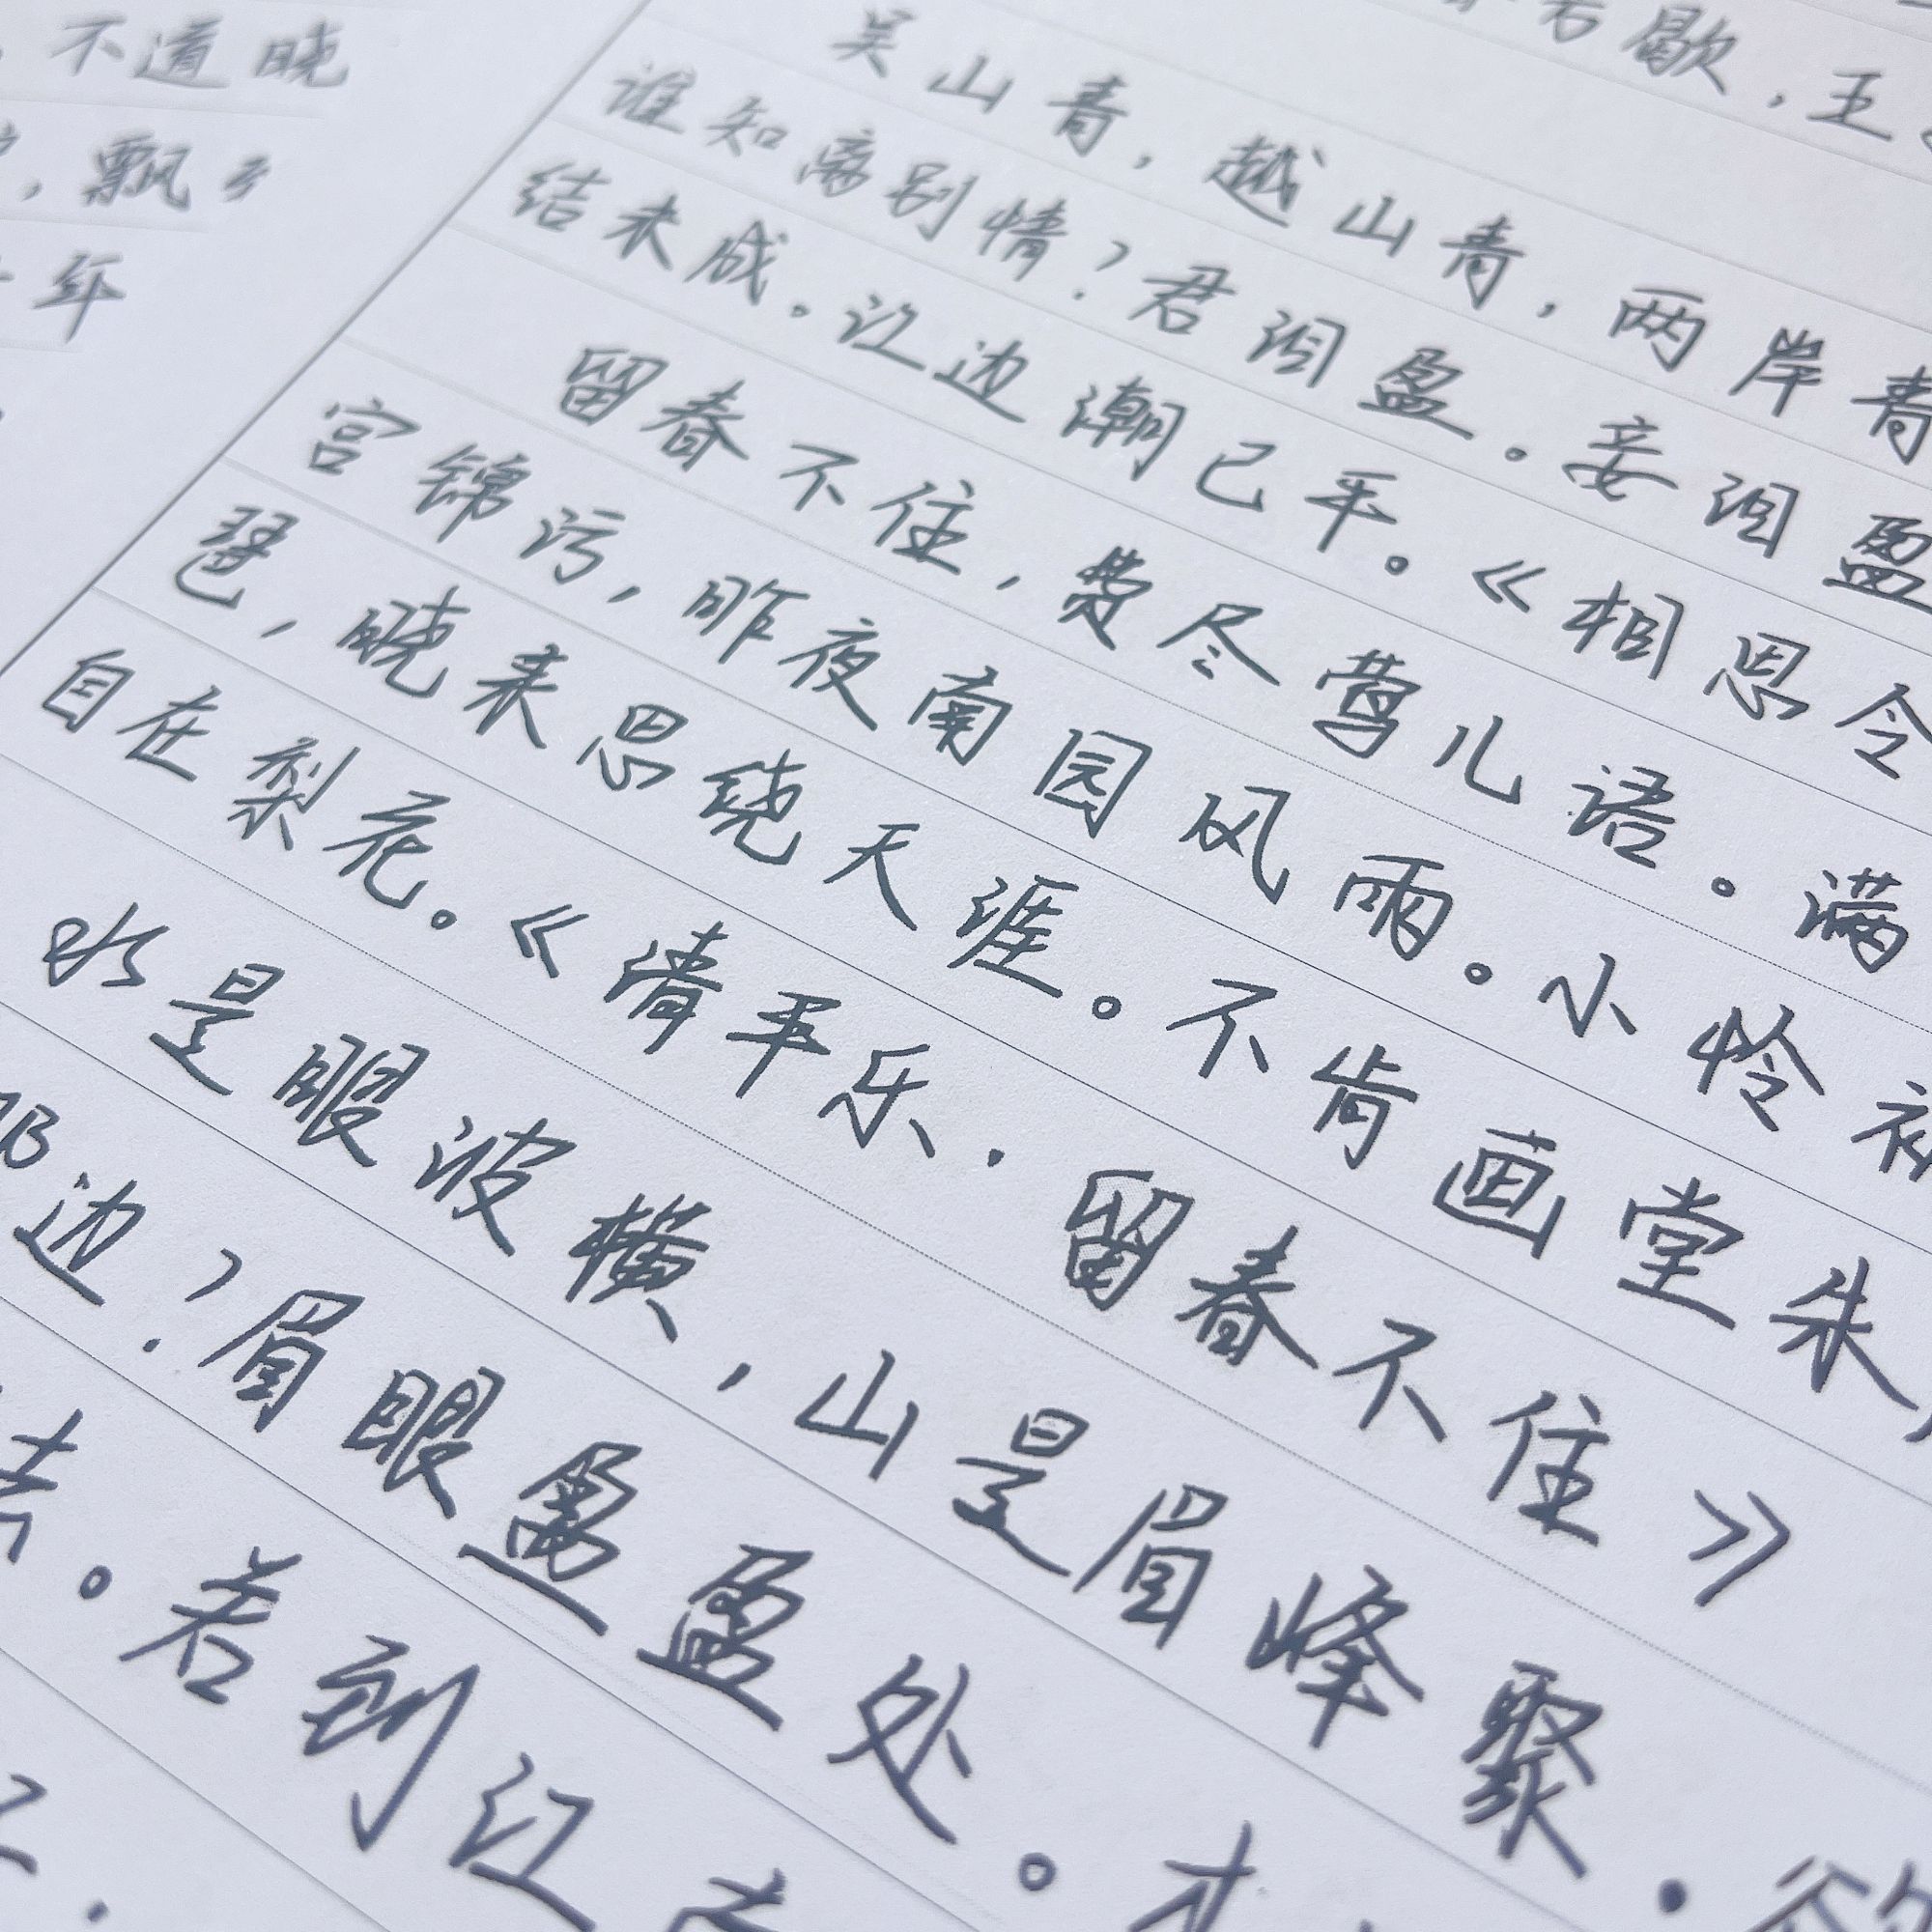 不道晓
，飘
年
若歇，王
吴山青，越山青，两岸青
谁知离别情？君泪盈。妾泪盈
结未成。江边潮已平。《相思令
留春不住，费尽莺儿语。满
宫锦污，昨夜南园风雨。小怜初
琶，晓来思绕天涯。不肯画堂朱
自在梨花。《清平乐·留春不住》
水是眼波横，山是眉峰聚．欲
那边？眉眼盈盈处。才
去。若到江